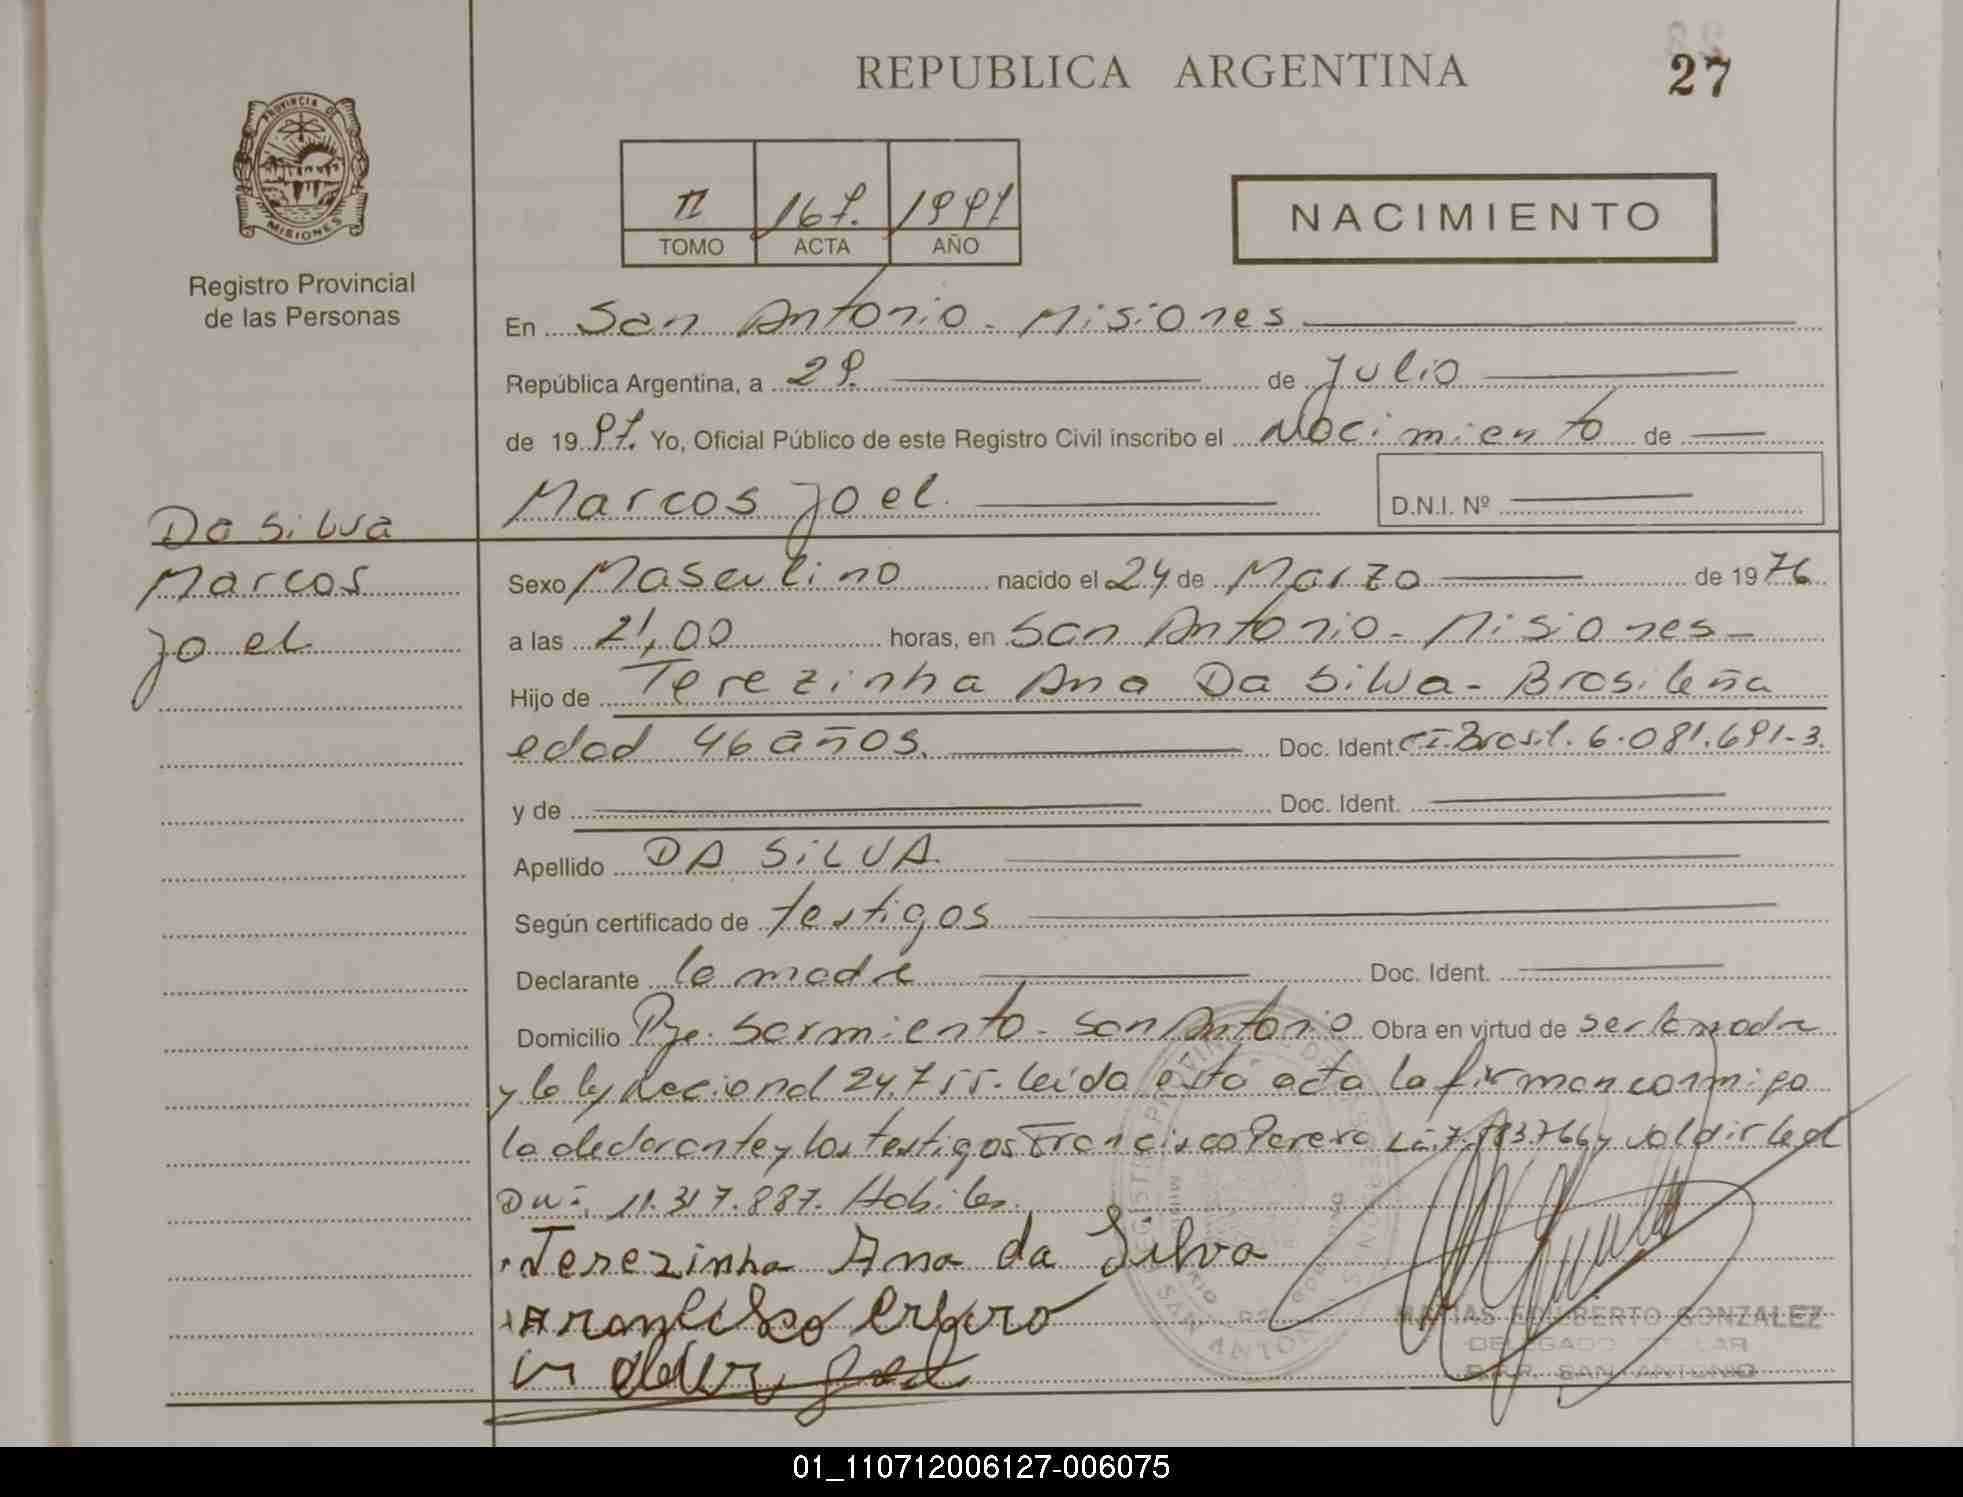 REPUBLICA ARGENTINA
27
PROVINCIA DE
MISIONES
Registro Provincial
de las Personas
II 167. 1997
TOMO ACTA AÑO
NACIMIENTO
En San Antonio - Misiones
República Argentina, a 29. de Julio
de 1997. Yo, Oficial Público de este Registro Civil inscribo el Nacimiento de
Marcos Joel D.N.I. Nº
Da Silva
Marcos
Joel
Sexo Masculino nacido el 24 de Marzo de 1976
a las 21,00 horas, en San Antonio - Misiones -
Hijo de Terezinha Ana Da Silva - Brasileña
edad 46 años. Doc. Ident. CI. Brasil. 6.081.691-3.
y de Doc. Ident.
Apellido DA SILVA.
Según certificado de testigos
Declarante la madre Doc. Ident.
Domicilio Pje. Sarmiento - San Antonio Obra en virtud de ser la madre
y la ley Nacional 24.755. leída esta acta la firman conmigo
la declarante y los testigos Francisco Perero y Valdir
11.317.887. Habiles.
Terezinha Ana da Silva
MATIAS EDILBERTO GONZALEZ
DELEGADO TITULAR
SAN ANTONIO
01_110712006127-006075